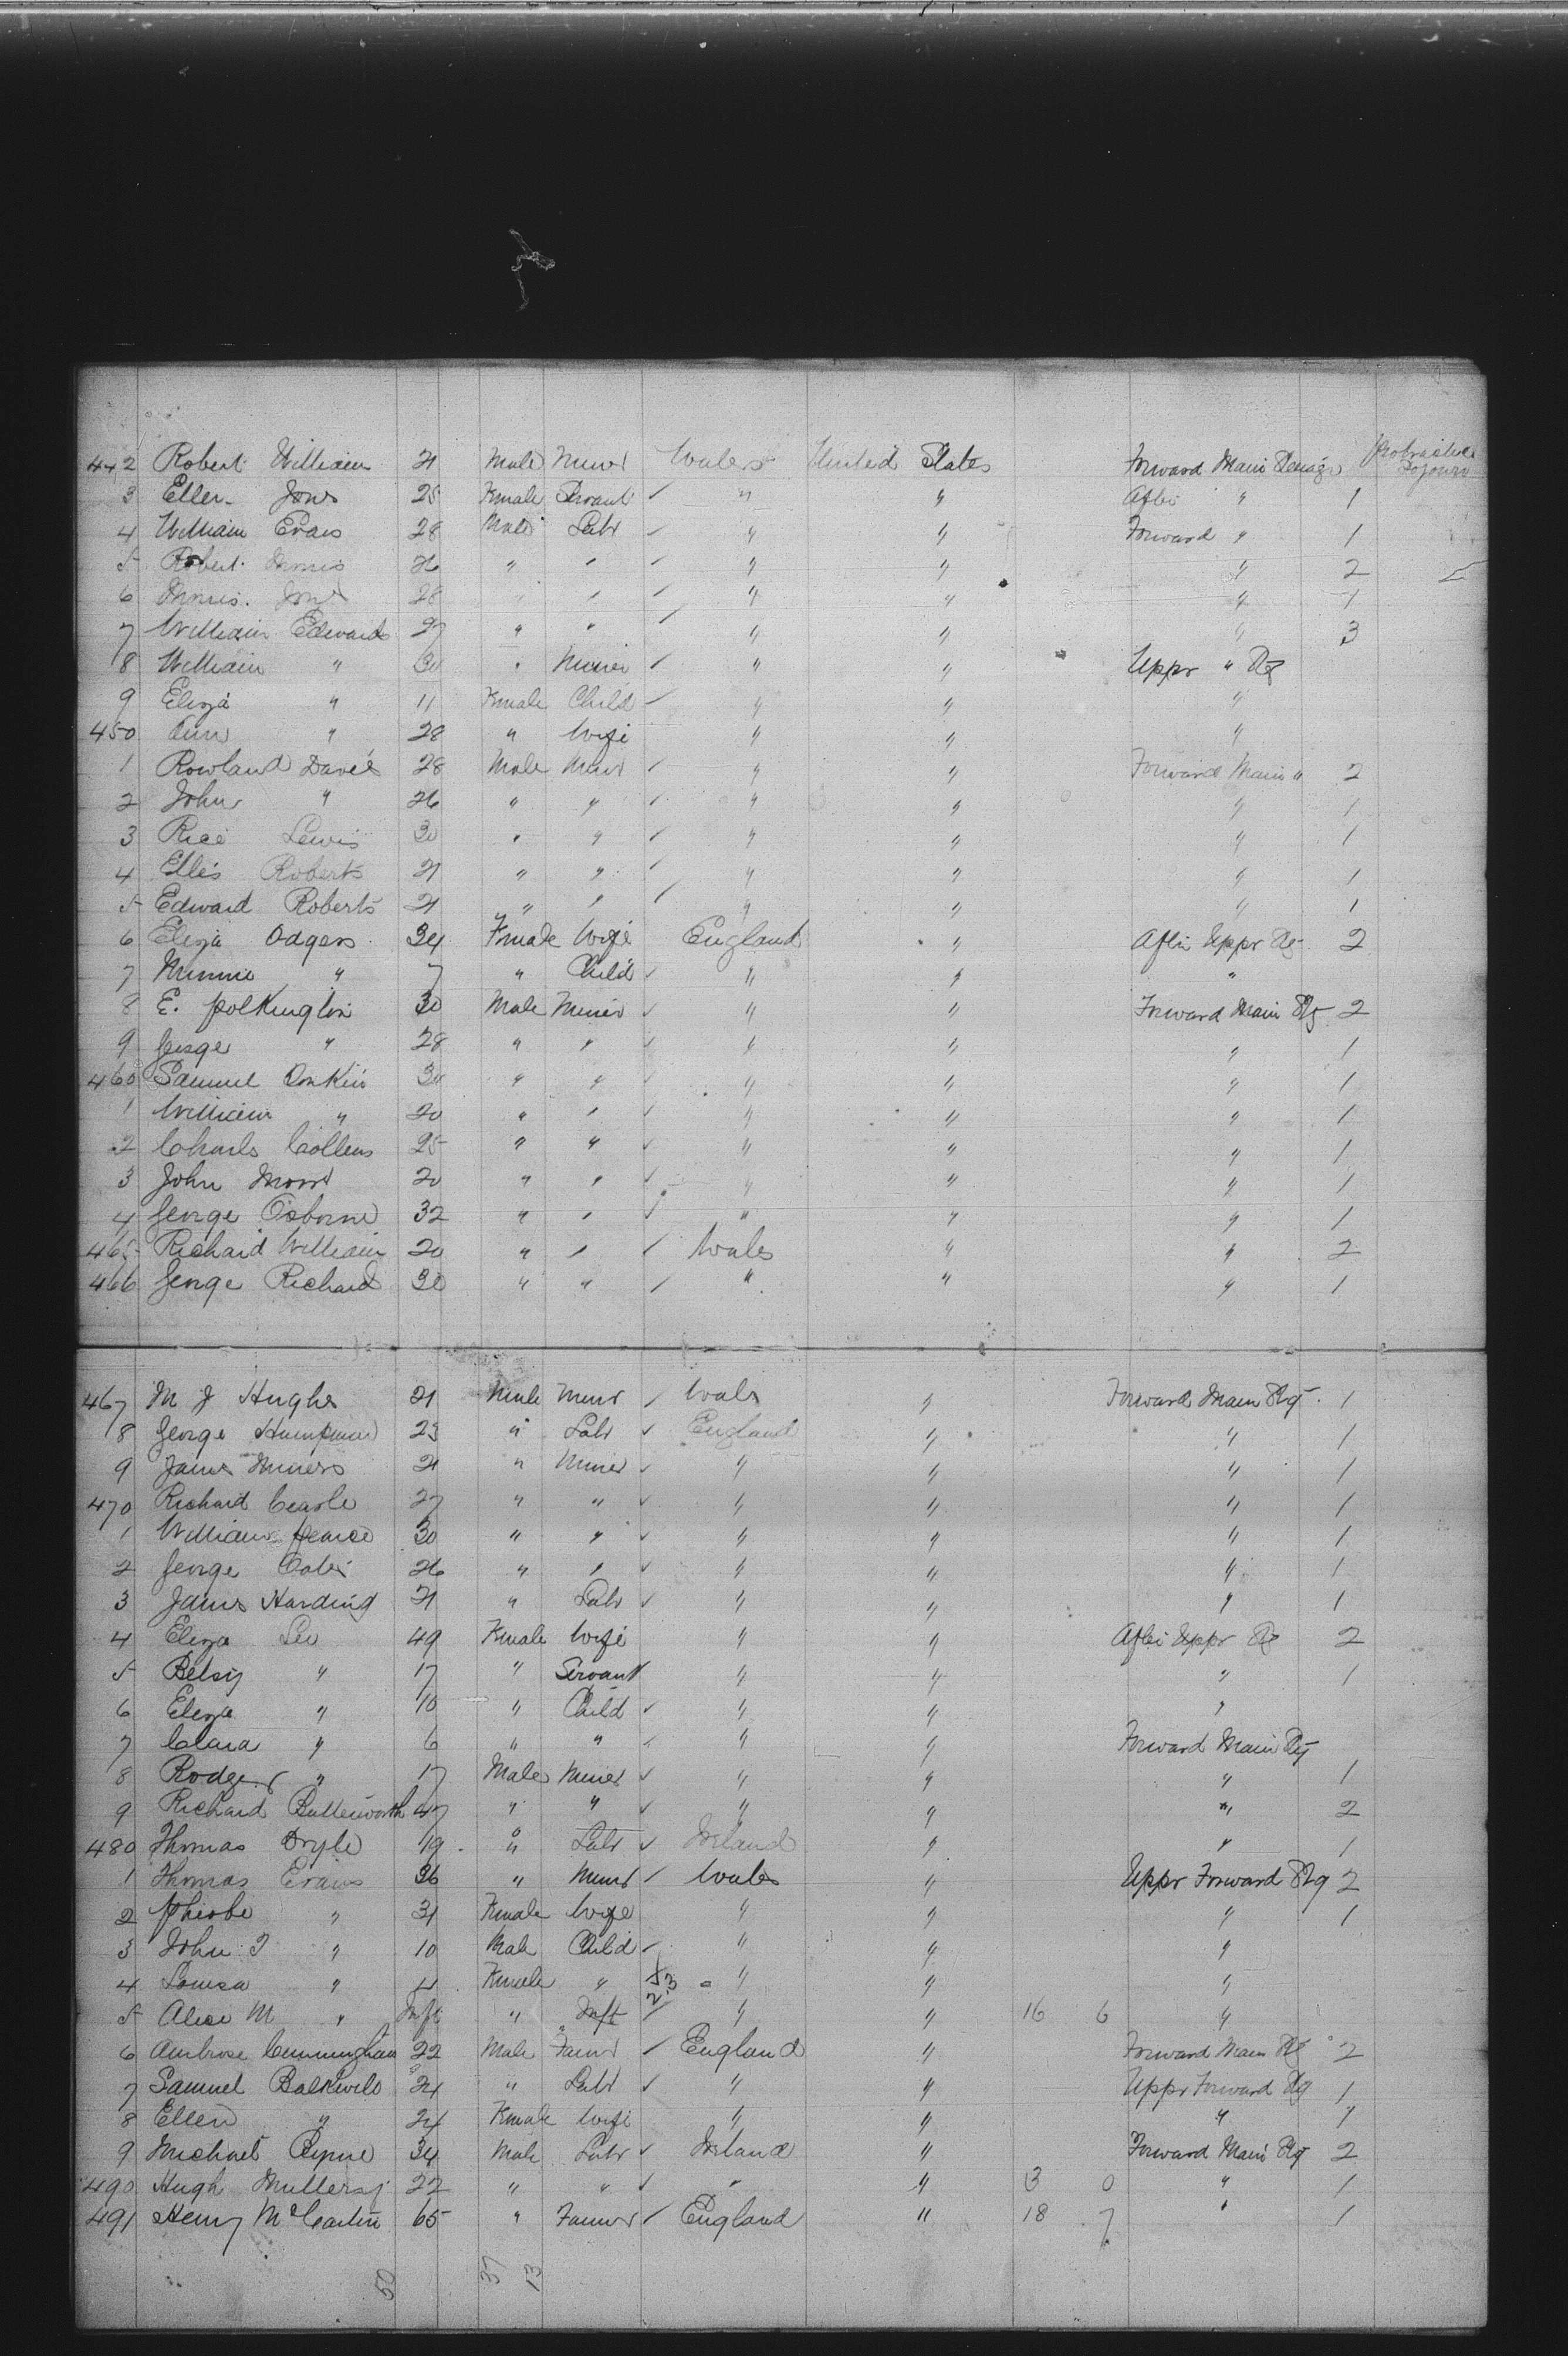 442 Robert William 21 Male Miner Wales United States Forward Main Protracted Sojourn
3 Ellen Jones 25 Female Servant ✓ " " After " 1
4 William Evans 28 Male Labr ✓ " " Forward " 1
5 Robert 26 " " ✓ " " " 2
6 Jones 28 " " ✓ " " " 1
7 William Edwards 27 " " ✓ " " " 3
8 William " 30 " Miner ✓ " " Uppr " Stg
9 Eliza " 11 Female Child ✓ " " "
450 Ann " 28 " Wife " " "
1 Rowland Davies 28 Male Minr ✓ " " Forward Main " 2
2 John " 26 " " ✓ " " " 1
3 Rice Lewis 30 " " ✓ " " " 1
4 Ellis Roberts 21 " " ✓ " " " 1
5 Edward Roberts 21 " " ✓ " " " 1
6 Eliza Odgers 34 Female Wife England " After Uppr Stg 2
7 Minnie " 7 " Child ✓ " " "
8 E. Polkington 30 Male Miner ✓ " " Forward Main Stg 2
9 George " 28 " " ✓ " " " 1
460 Samuel 30 " " ✓ " " " 1
1 William " 20 " " ✓ " " " 1
2 Charls Collens 25 " " ✓ " " " 1
3 John 20 " " ✓ " " " 1
4 George Osborne 32 " " ✓ " " " 1
465 Richard William 20 " " ✓ Wales " " 2
466 George Richard 30 " " ✓ " " " 1
467 M J Hughes 21 Male Minr ✓ Wales " Forward Main Stg 1
8 George 23 " Labr ✓ England " " 1
9 James Miners 21 " Miner ✓ " " " 1
470 Richard 27 " " ✓ " " " 1
1 William Pearce 30 " " ✓ " " " 1
2 George 26 " " ✓ " " " 1
3 James Harding 21 " Labr ✓ " " " 1
4 Eliza Lee 49 Female Wife " " After Uppr Stg 2
5 Betsy " 17 " Servant " " " 1
6 Eliza " 10 " Child ✓ " " "
7 Clara " 6 " " ✓ " " Forward Main Stg
8 Rodger " 17 Male Miner ✓ " " " 1
9 Richard Butterworth 47 " " ✓ " " " 2
480 Thomas 19 " Labr ✓ Ireland " " 1
1 Thomas Evans 36 " Minr ✓ Wales " Uppr Forward Stg 2
2 Pheobe " 31 Female Wife " " " 1
3 John T " 10 Male Child ✓ " " "
4 Louisa " 4 Female " " " "
5 Alice M " Inft " Inft ✓ " " 16 6 "
6 Ambrose Cunningham 22 Male Farmr ✓ England " Forward Main Stg 2
7 Samuel 24 " Labr ✓ " " Uppr Forward Stg 1
8 Ellen " 24 Female Wife " " " 1
9 Michael Byrne 34 Male Labr ✓ Ireland " Forward Main Stg 2
490 Hugh 22 " " ✓ " " 3 0 " 1
491 Henry 65 " Farmer ✓ England " 18 7 " 1
50 37 13